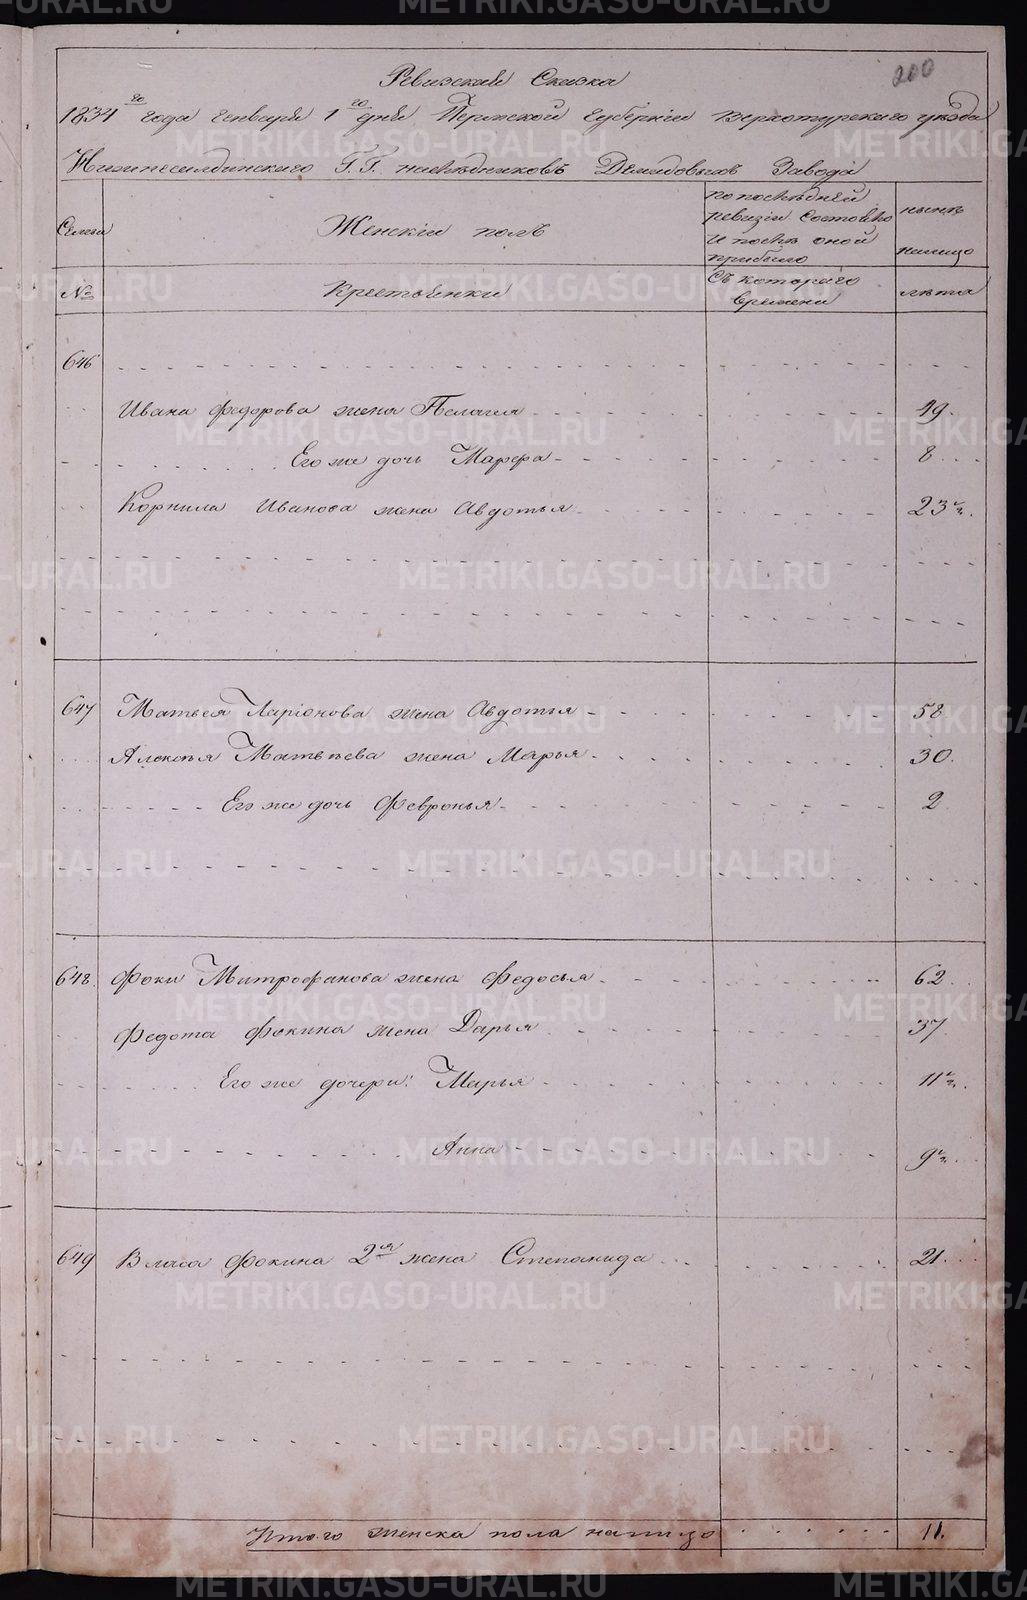 200
Ревизская Сказка
1834го года генваря 1го дня Пермской губернiи Верхотурскаго уезда
Нижнесалдинскаго Г.Г. наследниковъ Демидовыхъ Завода
Семьи
Женскiй полъ
по последней ревизiи состояло и после оной прибыло
ныне налицо
№
Крестьянки
Съ котораго времени
лета
646
Ивана Федорова жена Пелагея 49.
Его же дочь Марфа 8
Корнила Иванова жена Авдотья 23 ½.
647 Матвея Ларiонова жена Авдотья 58
Алексея Матвеева жена Марья 30.
Его же дочь Февронья 2
648. Фоки Митрофанова жена Федосья 62
Федота Фокина жена Дарья 37
Его же дочери: Марья 11 ½.
Анна 9 ½.
649 Власа Фокина 2я жена Степанида 21.
Итого женска пола налицо 11.
METRIKI.GASO-URAL.RU